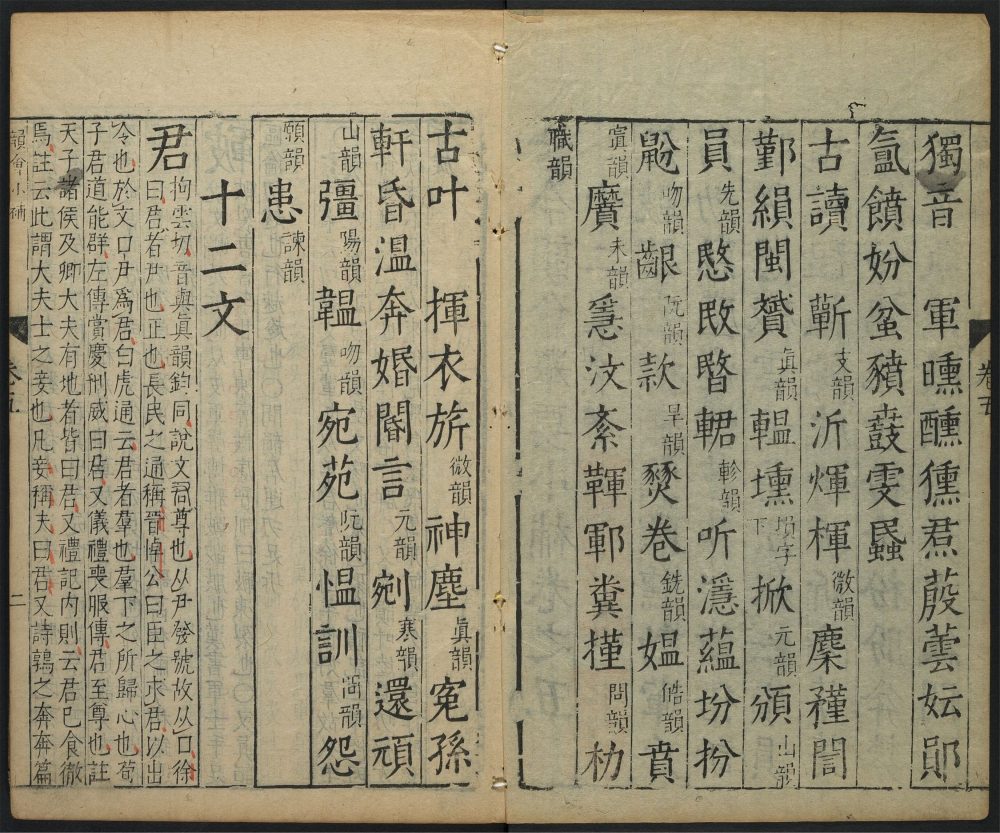 卷五
獨音 軍曛醺獯焄蒑蕓妘鄖
氲饙妢盆豶鼖雯䘇
古讀 斬支韻沂煇楎微韻麇穜誾
鄞縜閩贇眞韻輼壎塤字下掀元韻頒山韻
員先韻愍敃暋䡣軫韻听濦蘊坋扮
䶳吻韻齦阮韻款旱韻燹卷銑韻媼皓韻賁
寘韻黂未韻㥯汶紊鞸鄆糞墐問韻朸
職韻
古叶 揮衣旂微韻神塵眞韻冤孫
軒昏温奔婚閽言元韻剜寒韻還頑
山韻彊陽韻韞吻韻宛苑阮韻愠訓問韻怨
願韻患諫韻
十二文
君拘雲切音與眞韻鈞同說文君尊也从尹發號故从口徐
曰君者尹也正也長民之通稱晉悼公曰臣之求君以出
令也於文口尹爲君白虎通云君者羣也羣下之所歸心也荀
子君道能群左傳賞慶刑威曰君又儀禮喪服傳君至尊也註
天子諸侯及卿大夫有地者皆曰君又禮記內則云君已食徹
焉註云此謂大夫士之妾也凡妾稱夫曰君又詩鶉之奔奔篇
韻會小補 卷五 二